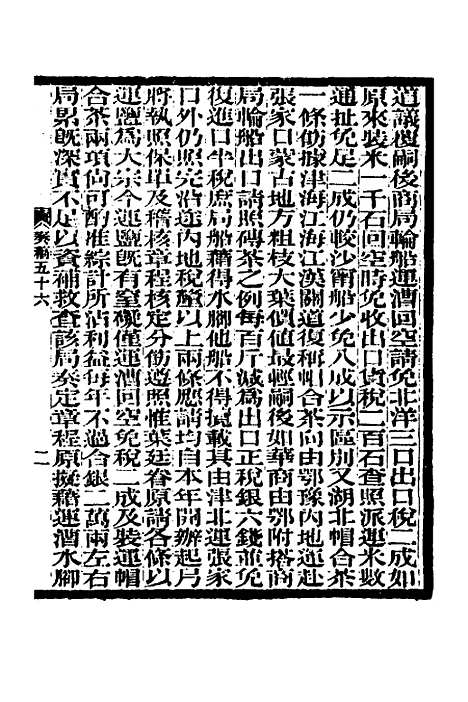 道議覆嗣後商局輪船運漕回空請免北洋三口出口稅二成如
原來裝米一千石回空時免收出口貨稅二百石查照派運米數
通扯免足二成仍較沙甯船少免八成以示區別又湖北帽合茶
一條仿據津海江海江漢關道復稱帽合茶向由鄂豫內地運赴
張家口蒙古地方粗枝大葉價値最輕嗣後如華商由鄂附搭商
局輪船出口請照磚茶之例每百斤減爲出口正稅銀六錢並免
復進口半稅庶局船藉得水腳他船不得攬載其由津北運張家
口外仍照完沿途內地稅釐以上兩條應請均自本年開辦起
將執照保單及稽核章程核定分飭遵照惟葉廷眷原請各條以
運鹽爲大宗今運鹽旣有窒礙僅運漕回空免稅二成及裝運帽
合茶兩項尙可酌准綜計所沾利益每年不過合銀二萬兩左右
局累旣深實不足以資補救查該局奏定章程原擬藉運漕水腳
奏稿五十六
二